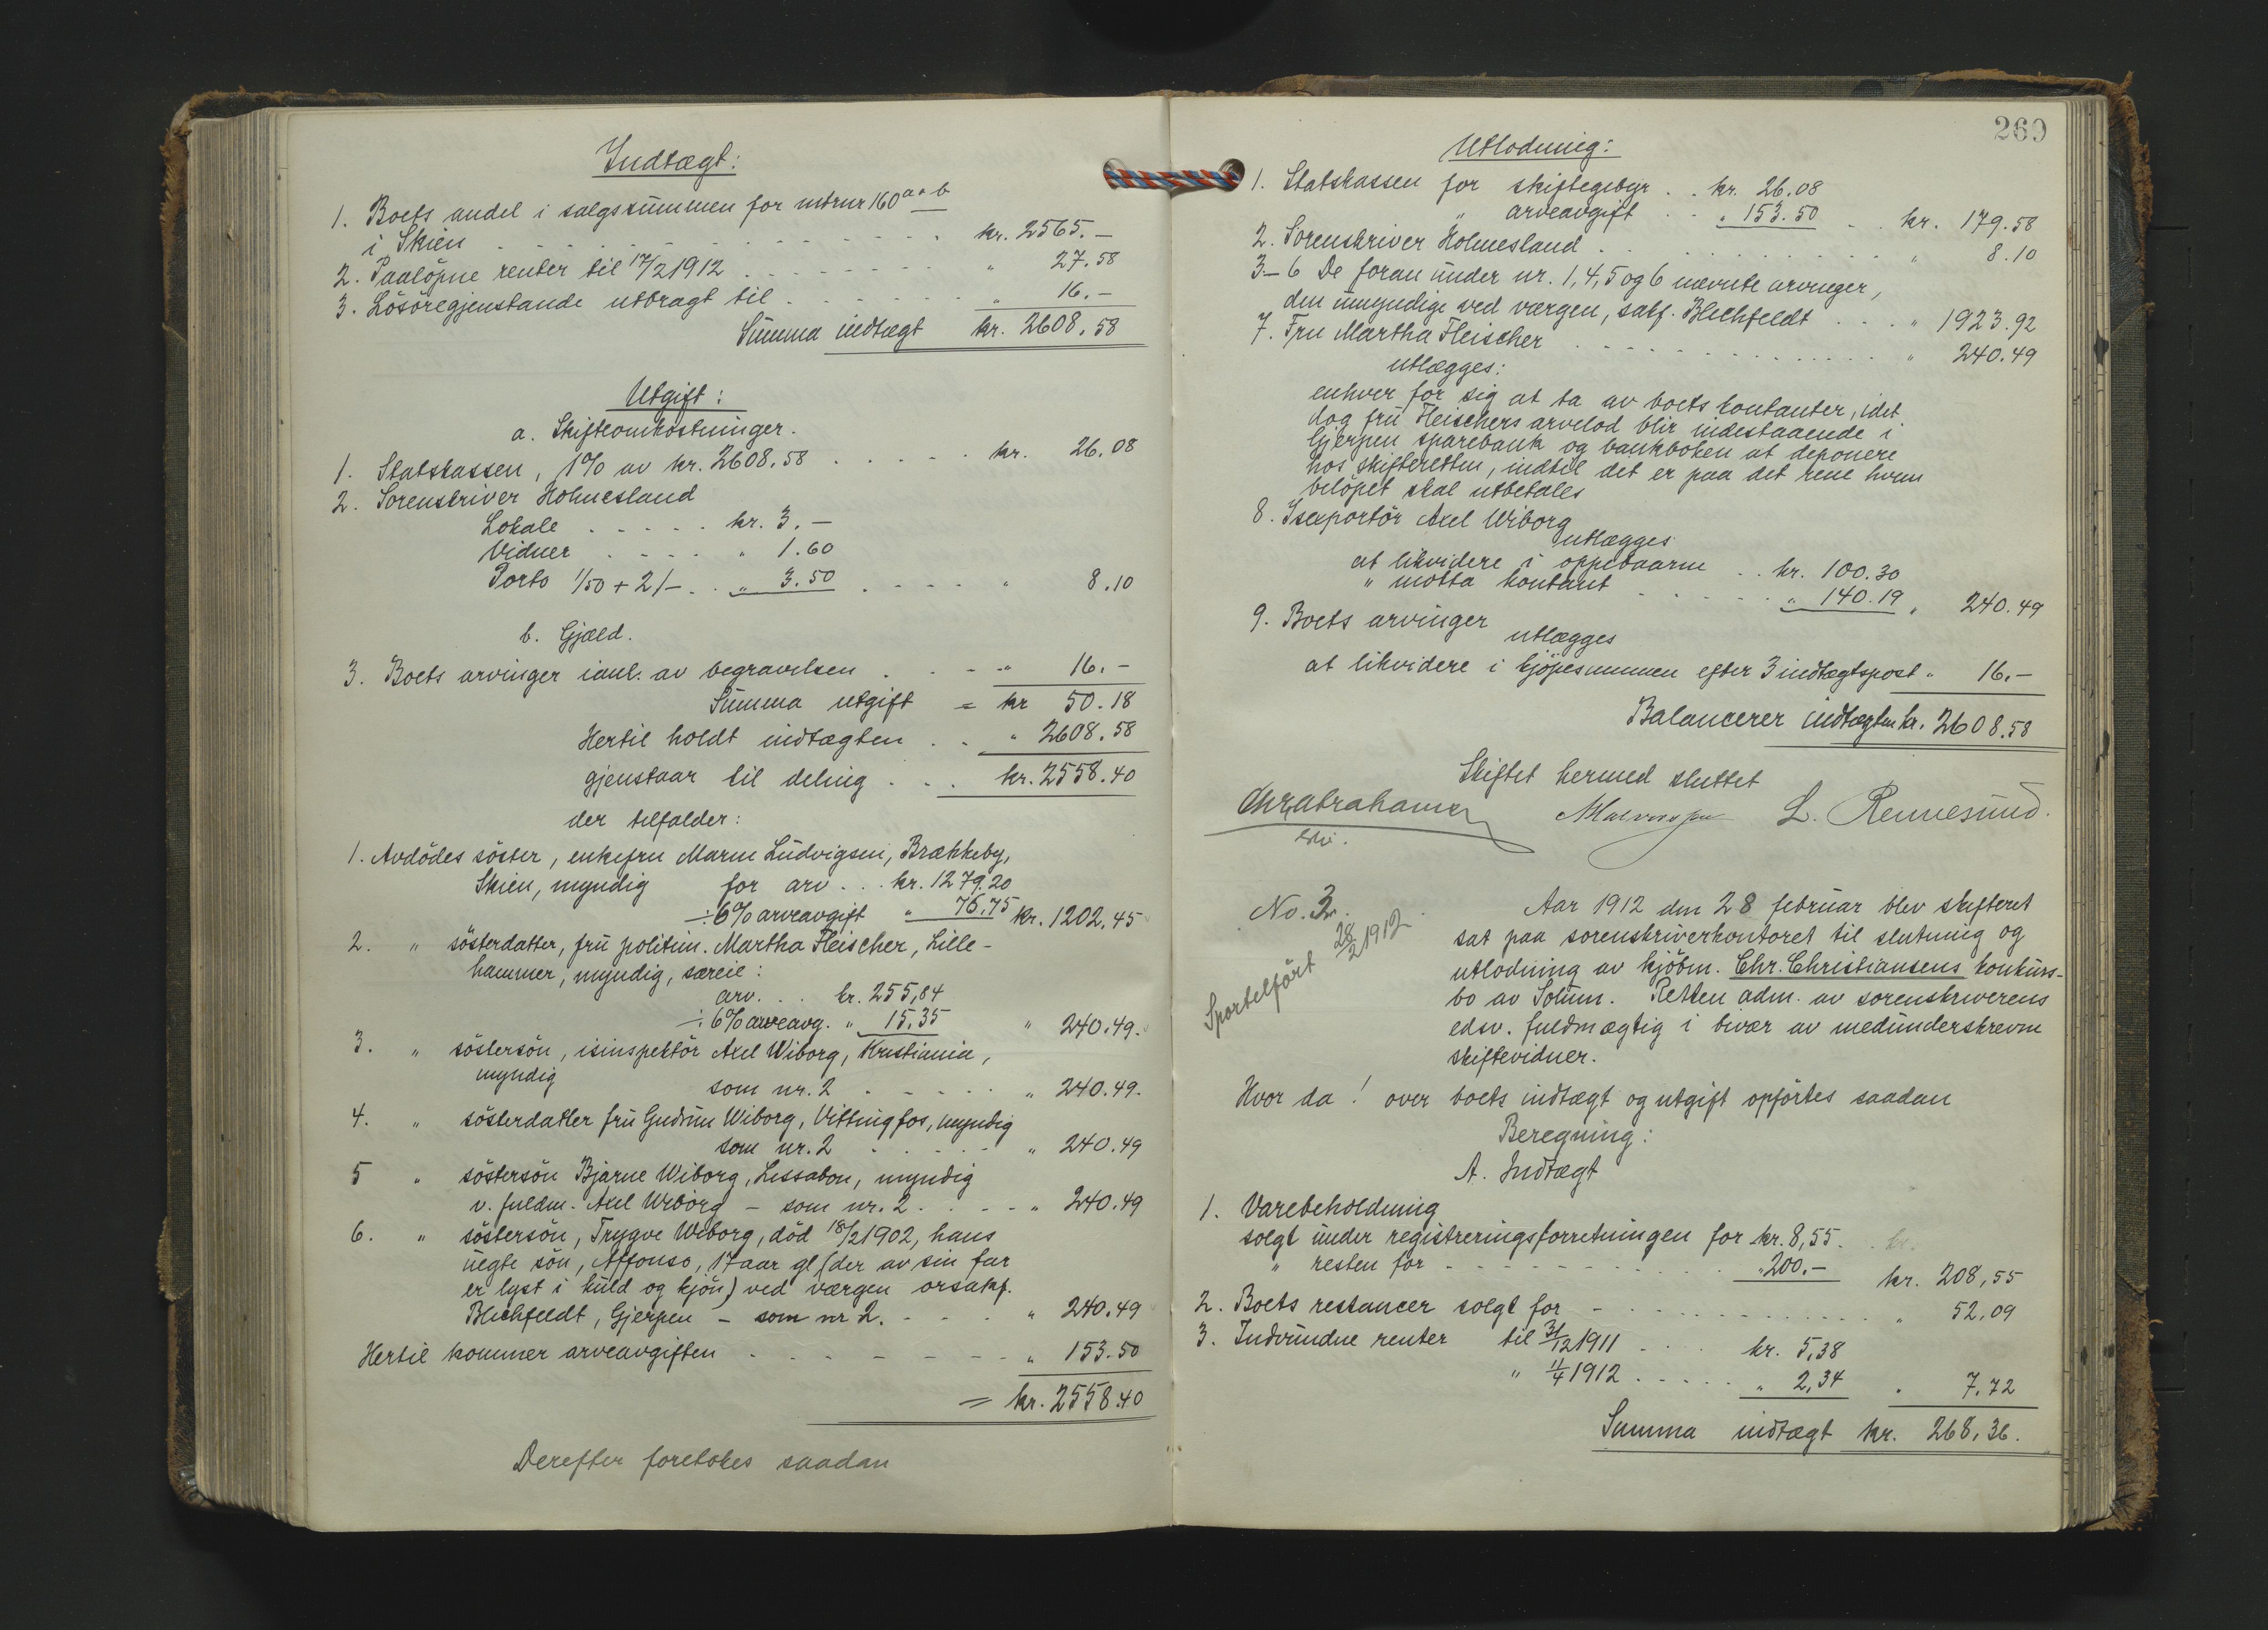 Indtægt:
1. Boets andel i salgssummen for mtrnr 160 a & b
i Skien . . . . kr. 2565.–
2. Paaløpne renter til 17/2 1912 . . . . " 27.58
3. Løsøregjenstande utbragt til . . . . " 16.–
Summa indtægt kr. 2608.58
Utgift:
a. Skifteomkostninger.
1. Statskassen, 1% av kr. 2608.58 . . . . kr. 26.08
2. Sorenskriver Holmesland
Lokale . . . . kr. 3.–
Vidner . . . . " 1.60
Porto 1/50 + 2/– . . " 3.50 . . . . " 8.10
b. Gjæld.
3. Boets arvinger ianl. av begravelsen . . . " 16.–
Summa utgift = kr 50.18
Hertil holdt indtægten . . " 2608.58
gjenstaar til deling . . . kr. 2558.40
der tilfalder:
1. Avdødes søster, enkefru Maren Ludvigsen, Brækkeby,
Skien, myndig for arv . . . kr. 1279.20
÷ 6% arveavgift " 76.75 kr. 1202.45
2. " søsterdatter, fru politim. Martha Fleischer, Lille-
hammer, myndig, særeie:
arv. . . kr. 255,84
÷ 6% arveavg. " 15.35 " 240.49.
3. " søstersøn, isinspektør Axel Wiborg, Kristiania,
myndig som nr. 2 . . . . " 240.49.
4. " søsterdatter fru Gudrun Wiborg, Vittingfos, myndig
som nr. 2 . . . . " 240.49
5 " søstersøn Bjarne Wiborg, Lissabon, myndig
v. fuldm. Axel Wiborg – som nr. 2 . . . . " 240.49
6. " søstersøn, Trygve Wiborg, død 18/2 1902, hans
uegte søn, Affonso, 17 aar gl. (der av sin far
er lyst i kuld og kjøn) ved værgen orsakf.
Blechfeldt, Gjerpen – som nr 2. . . . " 240.49
Hertil kommer arveavgiften . . . . " 153.50
= kr. 2558.40
Derefter foretokes saadan
260
Utlodning:
1. Statskassen for skiftegebyr . . kr. 26.08
" arveavgift . . " 153.50 . . kr. 179.58
2. Sorenskriver Holmesland . . . . " 8.10
3–6 De foran under nr. 1, 4, 5 og 6 nævnte arvinger,
den umyndige ved værgen, sakf. Blechfeldt . . . " 1923.92
7. Fru Martha Fleischer . . . . " 240.49
utlægges:
enhver for sig at ta av boets kontanter, idet
dog fru Fleischers arvelod blir indestaaende i
Gjerpen sparebank og bankboken at deponere
hos skifteretten, indtil det er paa det rene hvem
beløpet skal utbetales
8. Isexportør Axel Wiborg
utlægges
at likvidere i oppebaarne . . kr. 100.30
" motta kontant . . . . " 140.19 " 240.49
9. Boets arvinger
utlægges
at likvidere i kjøpesummen efter 3 indtægtspost " 16.–
Balancerer indtægten kr. 2608.58
Skiftet hermed sluttet
Chr Abrahamsen L. Rennesund.
No. 3.
Sportelført 28/2 1912.
Aar 1912 den 28 februar blev skifteret
sat paa sorenskriverkontoret til slutning og
utlodning av kjøbm. Chr. Christiansens konkurs-
bo av Solum. Retten adm. av sorenskriverens
edsv. fuldmægtig i bivær av medunderskrevne
skiftevidner.
Hvor da! over boets indtægt og utgift opførtes saadan
Beregning:
A. Indtægt
1. Varebeholdning
solgt under registreringsforretningen for kr. 8,55 . . kr.
" resten for . . . . " 200.– kr. 208,55
2. Boets restancer solgt for . . . . " 52,09
3. Indvundne renter til 31/12 1911 . . . . kr. 5,38
" 11/4 1912 . . . . " 2,34 " 7,72
Summa indtægt kr. 268,36.